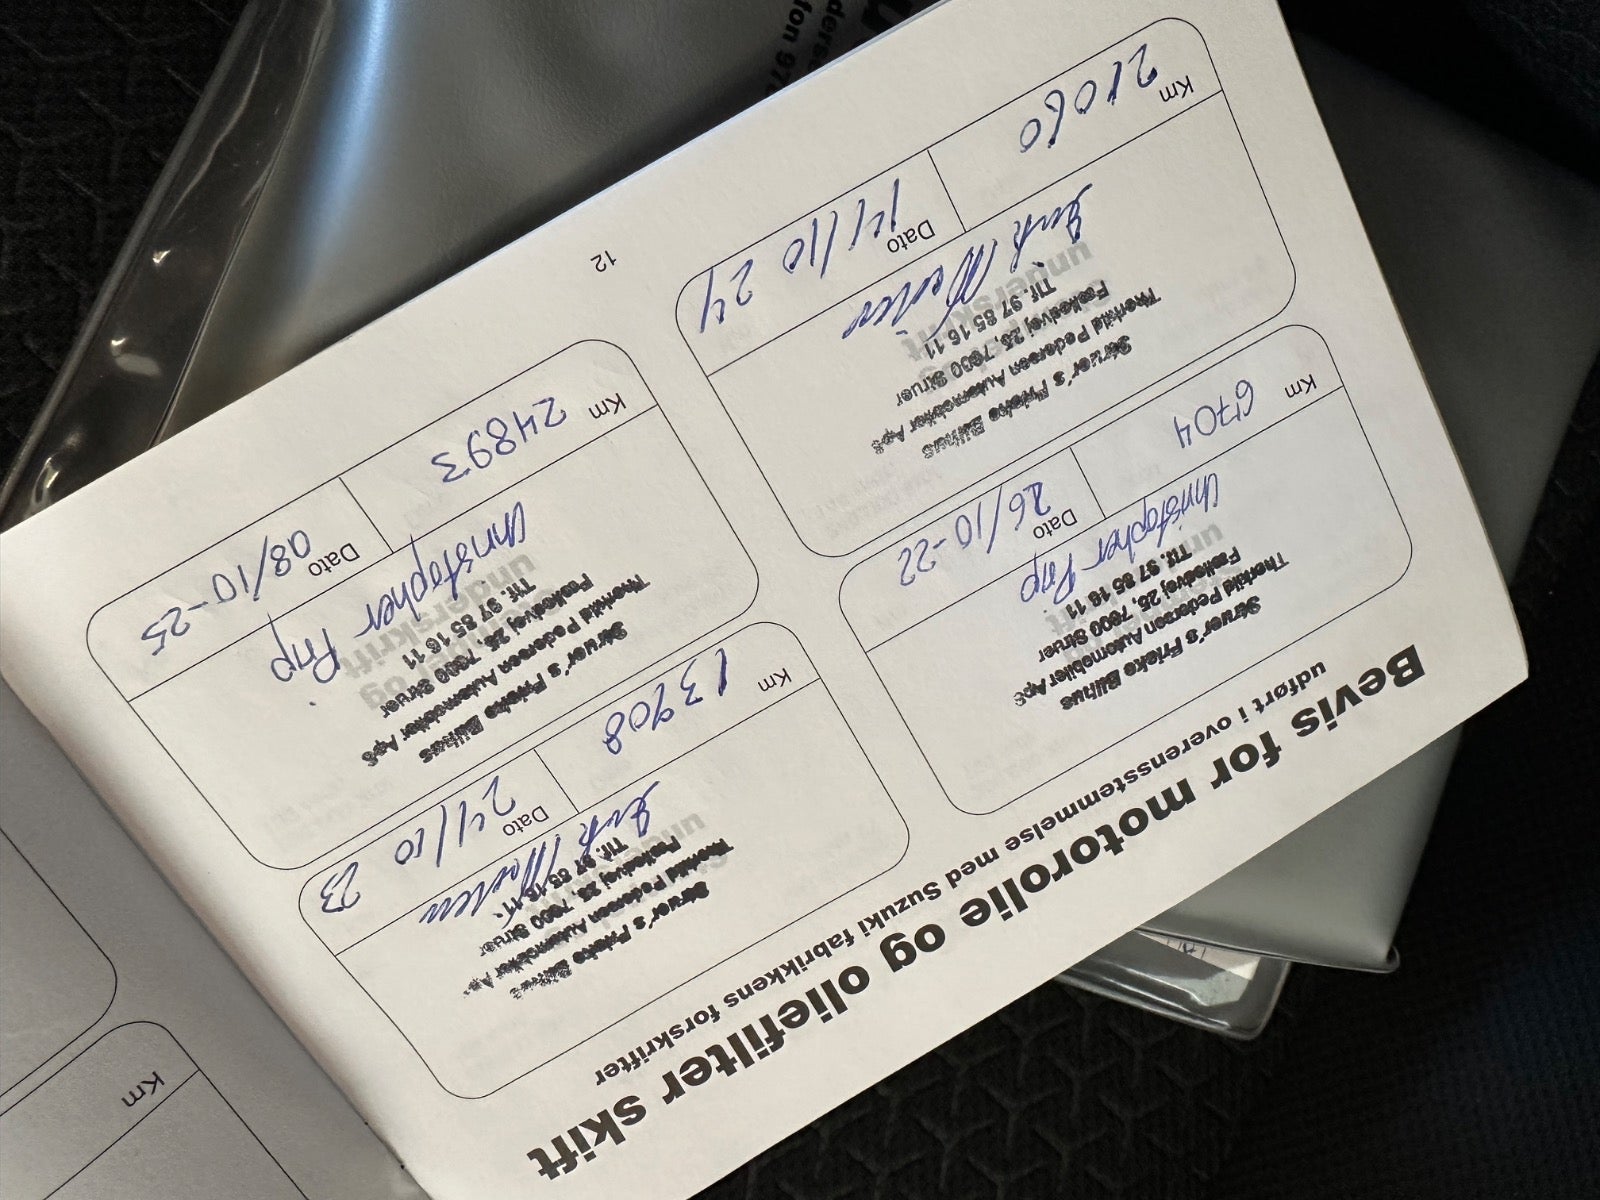 Bevis for motorolie og oliefilter skift
udført i overensstemmelse med Suzuki fabrikkens forskrifter
Struer's Friske Bilhus
Thorkild Pedersen Automobiler ApS
Fælledvej 25, 7600 Struer
Tlf. 97 85 16 11
Christopher
Km
6704
Dato
26/10-22
Struer's Friske Bilhus
Thorkild Pedersen Automobiler Ap
Fælledvej 25, 7600 Struer
Tlf. 97 85 16 11
Km
13908
Dato
24/10 23
Struer's Friske Bilhus
Thorkild Pedersen Automobiler ApS
Fælledvej 25, 7600 Struer
Tlf. 97 85 16 11
underskrift
Km
21060
Dato
14/10 24
Struer's Friske Bilhus
Thorkild Pedersen Automobiler ApS
Fælledvej 25, 7600 Struer
Tlf. 97 85 16 11
underskrift
Christopher
Km
24893
Dato
08/10-25
12
Km